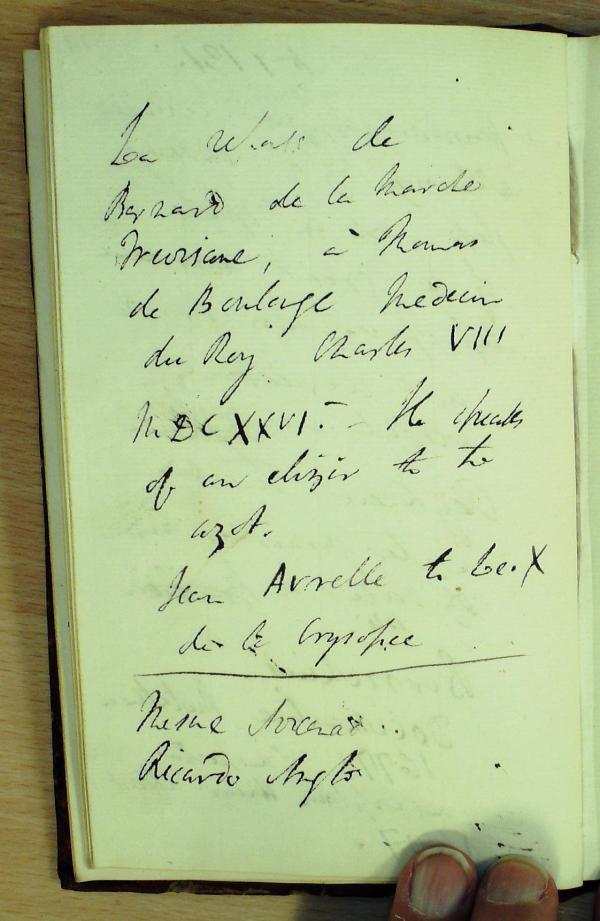 La        de
Bernard de la Marche
Trevisane, à Thomas
de Boulogne Medecin
du Roy Charles VIII
MDCXXVI. - He speaks
of an elixir to the
azot.
Jean        to Leo. X
de la Crysopee
Mesue
Ricardo Anglo